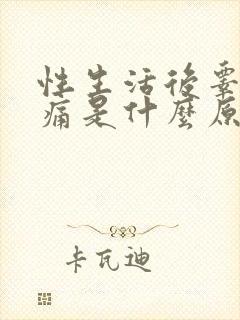 性生活後睾
痛是什麼原
卡瓦迪